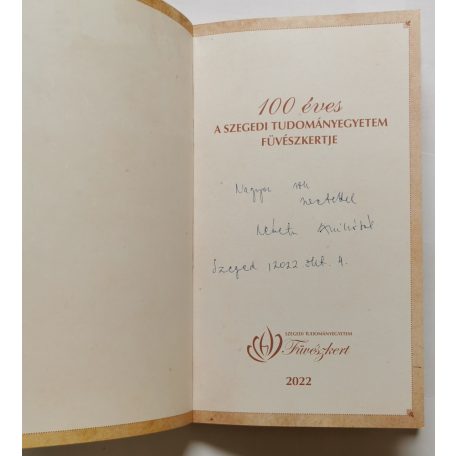 100 éves
A SZEGEDI TUDOMÁNYEGYETEM
FÜVÉSZKERTJE
Nagyon sok
szeretettel
Németh Anikótól
Szeged, 2022 okt. 4.
SZEGEDI TUDOMÁNYEGYETEM
Füvészkert
2022